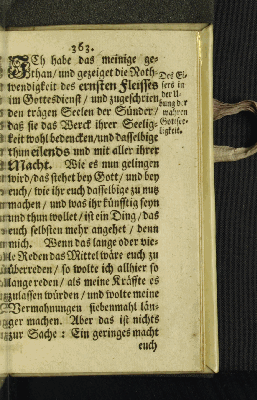 363.
ICh habe das meinige ge-
than / und gezeiget die Noth-
wendigkeit des ernsten Fleisses
im Gottesdienst / und zugeschrien
den trägen Seelen der Sünder /
daß sie das Werck ihrer Seelig-
keit wohl bedencken / und dasselbige
thun eilends und mit aller ihrer
Macht. Wie es nun gelingen
wird / das stehet bey Gott / und bey
euch / wie ihr euch dasselbige zu nutz
machen / und was ihr künfftig seyn
und thun wollet / ist ein Ding / das
euch selbsten mehr angehet / denn
mich. Wenn das lange oder vie-
le Reden das Mittel wäre euch zu
überreden / so wolte ich allhier so
lange reden / als meine Kräffte es
zulassen würden / und wolte meine
Vermahnungen siebenmahl län-
ger machen. Aber das ist nichts
zur Sache : Ein geringes macht
euch
Des Ei-
fers in
der U-
bung der
wahren
Gottsee-
ligkeit.